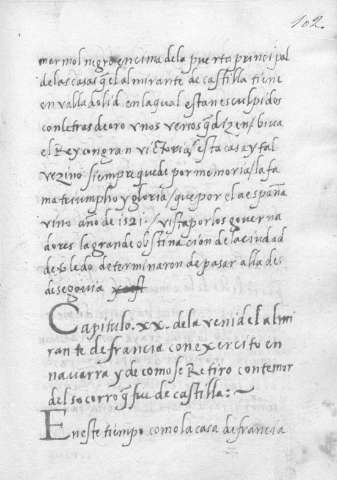 102.
mermol negro encima de la puerta principal
de las casas q̃ el almirante de castilla tiene
en valladolid. en la qual estan esculpidos
con letras de oro unos versos q̃ dizen / biua
el Rey con gran victoria / esta casa y tal
vezino / siempre quede por memoria / la fa
ma triumpho y gloria / que por el a españa
vino año de 1521 ·/ vista por los governa
dores la grande obstinación de la ciudad
de toledo determinaron de pasar alla des
de segovia
Capitulo. xx. de la venida del almi
rante de francia con exercito en
navarra y de como se Retiro con temor
del socorro q̃ fue de castilla: ~
En este tiempo como la casa de francia